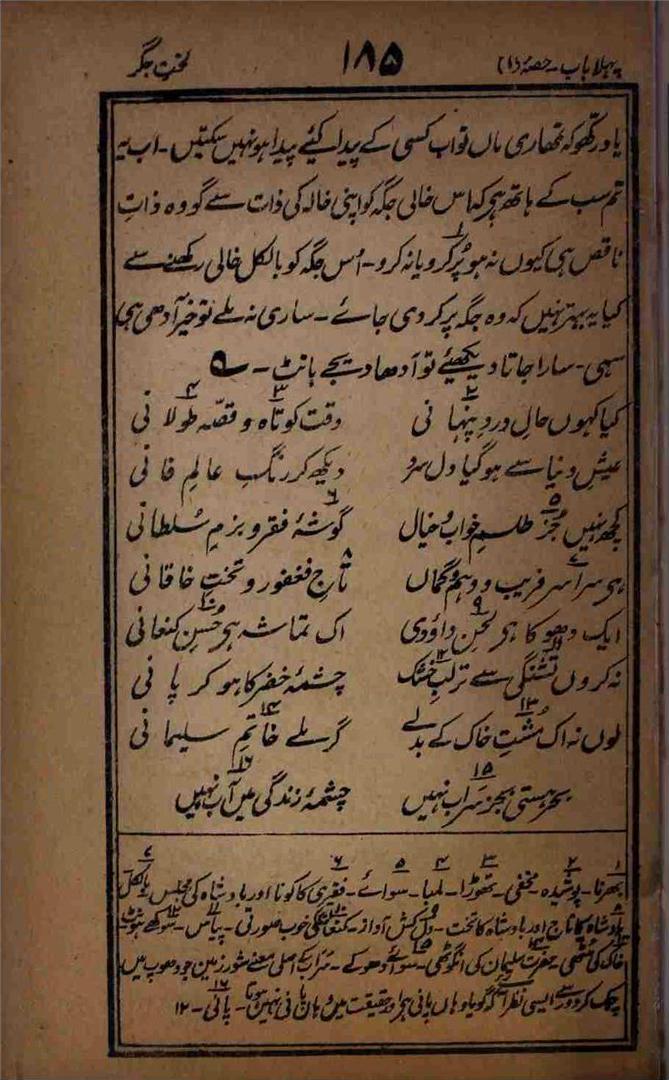 پہلا باب - حصۂ (۱) ۱۸۵ لختِ جگر
یاد رکھو کہ تمھاری ماں تو اب کسی کے پیدا کیئے پیدا ہو نہیں سکتیں - اب یہ
تم سب کے ہاتھ ہی کہ اس خالی جگہ کو اپنی خالہ کی ذات سے گو وہ ذات
ناقص ہی کیوں نہ ہو پُر۱ کرو یا نہ کرو - اُس جگہ کو بالکل خالی رکھنے سے
کیا یہ بہتر نہیں کہ وہ جگہ پر کر دی جائے - ساری نہ ملے تو خیر آدھی ہی
سہی - سارا جاتا دیکھیئے تو آدھا دیجے بانٹ -
کیا کہوں حالِ دردِ پنہانی۲ وقت کوتاہ۳ و قصّہ طولانی۴
عیشِ دنیا سے ہو گیا دل سرد دیکھ کر رنگ عالمِ فانی
کچھ نہیں بجز۵ طلسمِ خواب و خیال گوشۂ فقر۶ و بزمِ سُلطانی
ہی سراسر فریب و وہم و گماں۷ تاجِ فغفور و تختِ خاقانی۸
ایک دھوکا ہی لحنِ۹ داؤدی اک تماشہ ہی حُسنِ کنعانی۱۰
نہ کروں تشنگی۱۱ سے تر لبِ خشک۱۲ چشمۂ خضر کا ہو گر پانی
لوں نہ اک مُشتِ خاک۱۳ کے بدلے گر ملے خاتمِ۱۴ سلیمانی
بحرِ ہستی بجز۱۵ سراب نہیں چشمۂ زندگی میں آب۱۶ نہیں
۱ بھرنا - ۲ پوشیدہ - مخفی - ۳ تھوڑا - ۴ لمبا - ۵ سوائے - ۶ فقیری کا کونا اور بادشاہ کی مجلس ۷ بالکل
۸ بادشاہ کا تاج اور بادشاہ کا تخت - ۹ دل کش آواز - ۱۰ کنعان کی خوب صورتی - ۱۱ پیاس - ۱۲ سوکھے ہونٹ -
۱۳ خاک کی مٹھی - ۱۴ حضرت سلیمان کی انگوٹھی - ۱۵ سوائے دھوکے - سراب کے اصلی معنے شور زمین جو دھوپ میں
چمک کر دور سے ایسی نظر آئے گویا وہاں پانی ہی اور حقیقت میں وہاں پانی نہیں ہوتا - ۱۶ پانی - ۱۲